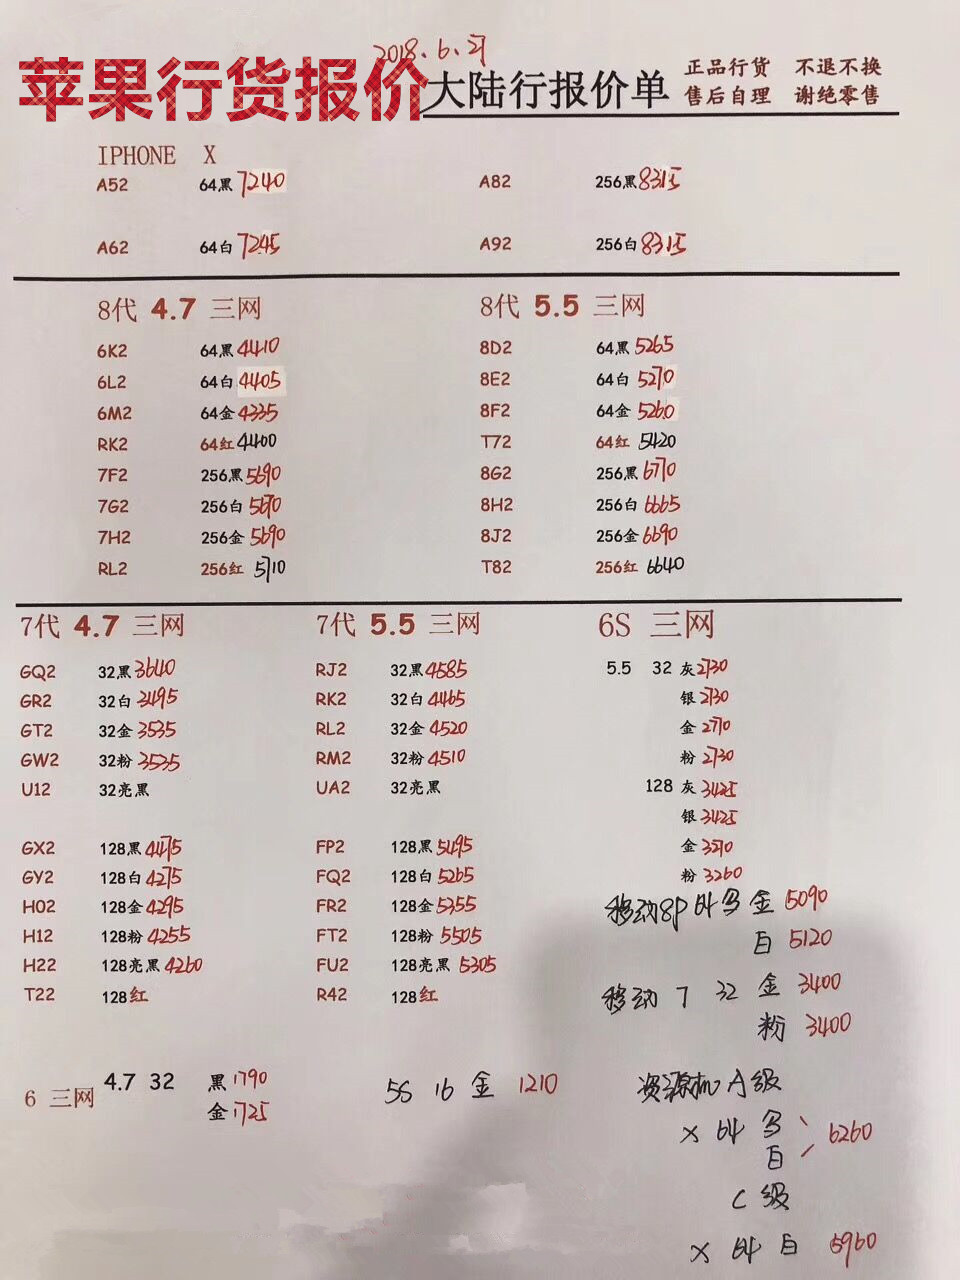 2018.6.27
苹果行货报价
大陆行报价单
正品行货 不退不换
售后自理 谢绝零售
IPHONE X
A52 64黑 7240 A82 256黑 8315
A62 64白 7245 A92 256白 8315
8代 4.7 三网 8代 5.5 三网
6K2 64黑 4410 8D2 64黑 5265
6L2 64白 4405 8E2 64白 5270
6M2 64金 4335 8F2 64金 5260
RK2 64红 4400 T72 64红 5420
7F2 256黑 5690 8G2 256黑 6770
7G2 256白 5670 8H2 256白 6665
7H2 256金 5690 8J2 256金 6690
RL2 256红 5710 T82 256红 6640
7代 4.7 三网 7代 5.5 三网 6S 三网
GQ2 32黑 3640 RJ2 32黑 4585 5.5 32 灰 2730
GR2 32白 3495 RK2 32白 4465 银 2730
GT2 32金 3535 RL2 32金 4520 金 2770
GW2 32粉 3535 RM2 32粉 4510 粉 2730
U12 32亮黑 UA2 32亮黑 128 灰 3425
银 3425
GX2 128黑 4475 FP2 128黑 5495 金 3270
GY2 128白 4275 FQ2 128白 5265 粉 3260
H02 128金 4295 FR2 128金 5355 移动8P 64 金 5090
H12 128粉 4255 FT2 128粉 5505 白 5120
H22 128亮黑 4260 FU2 128亮黑 5305 移动 7 32 金 3400
T22 128红 R42 128红 粉 3400
6 三网 4.7 32 黑 1790 5S 16 金 1210 资源机 A级
金 1725
X 64 白 6260
C级
X 64 白 5960